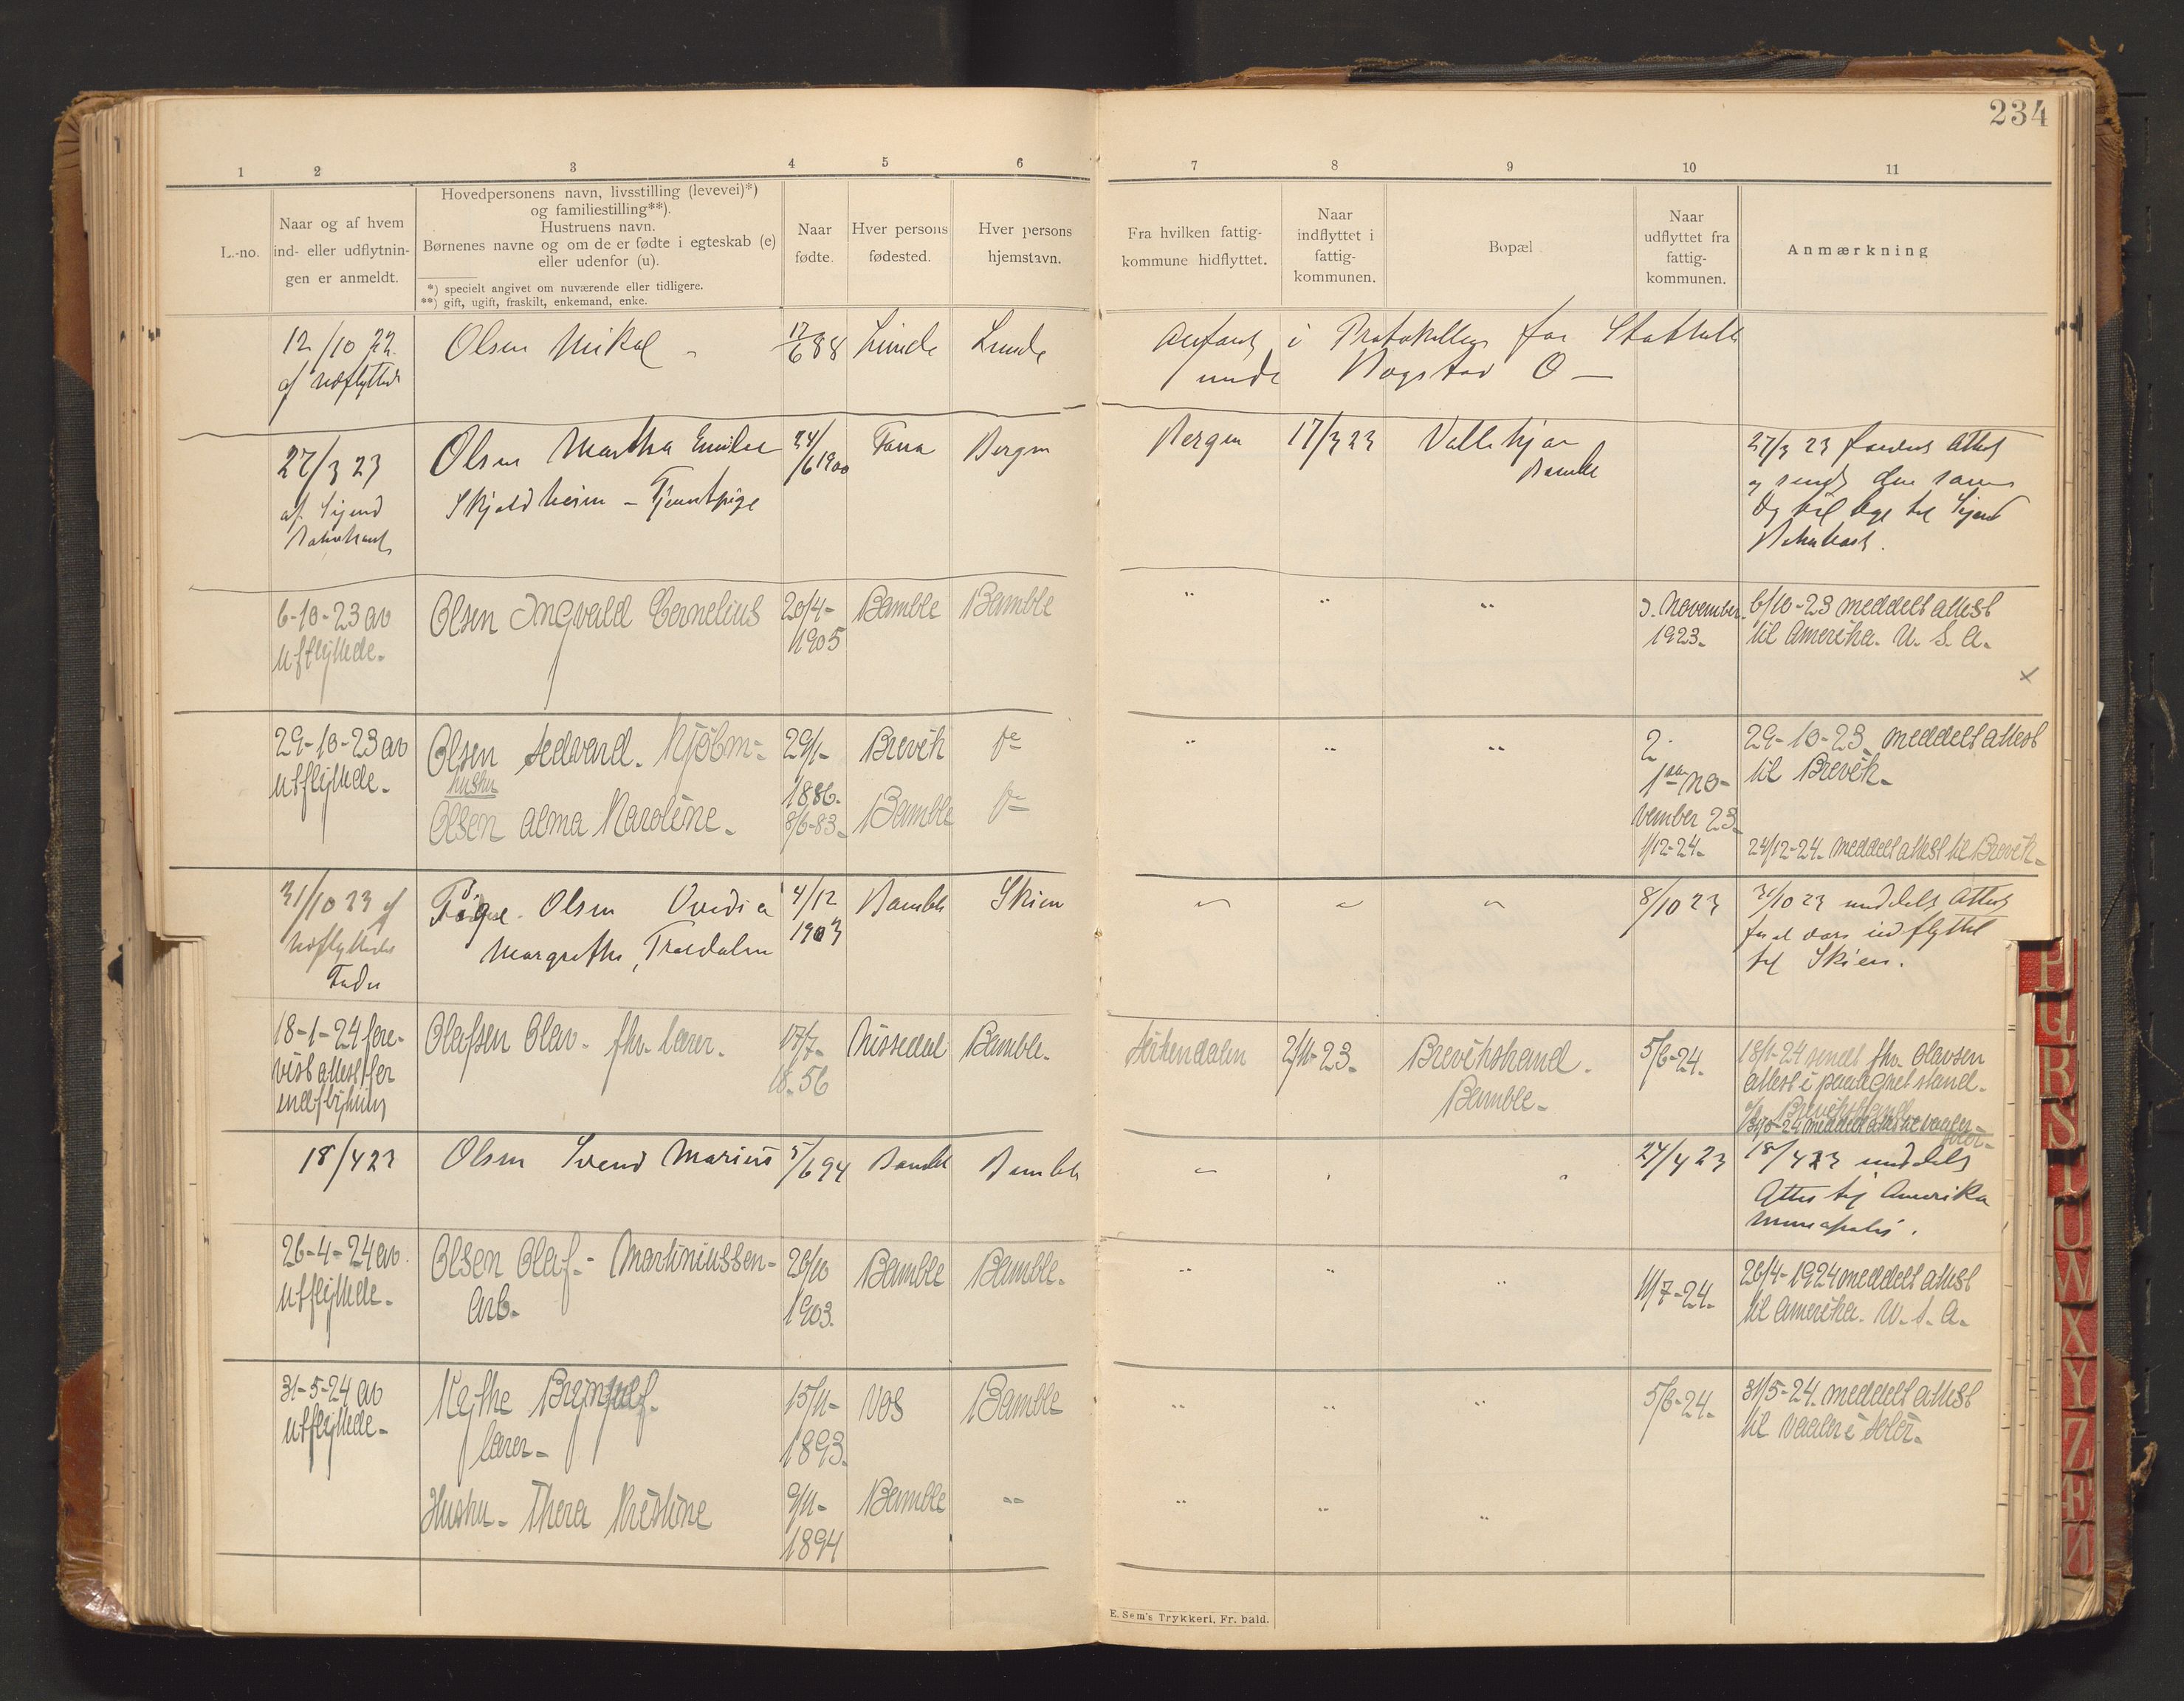 234
1 2 3 4 5 6 7 8 9 10 11
L.-no.
Naar og af hvem
ind- eller udflytnin-
gen er anmeldt.
Hovedpersonens navn, livsstilling (levevei)*)
og familiestilling**).
Hustruens navn.
Børnenes navne og om de er fødte i egteskab (e)
eller udenfor (u).
*) specielt angivet om nuværende eller tidligere.
**) gift, ugift, fraskilt, enkemand, enke.
Naar
fødte.
Hver persons
fødested.
Hver persons
hjemstavn.
Fra hvilken fattig-
kommune hidflyttet.
Naar
indflyttet i
fattig-
kommunen.
Bopæl
Naar
udflyttet fra
fattig-
kommunen.
Anmærkning
12/10 22.
af udflyttede
Olsen Mikal
17/6 88
Lunde
Lunde
i Protokollen for Stathelle
under O —
27/3 23
af
Olsen Martha Emilie
Skjoldheim - Tjenestpige
24/6 1900
Fana
Bergen
Bergen
17/3 23
Vallekjær
Bamble
27/3 23
6-10-23 av
utflyttede.
Olsen Ingvald Cornelius
20/4-
1905
Bamble
Bamble
" " "
3. November.
1923.
6/10-23 meddelt attest
til Amerika. U. S. A.
x
29-10-23 av
utflyttede.
Olsen Edvard. Kjøbm-
hustru
Olsen Alma Karoline.
29/1-
1886.
8/6-83.
Brevik
Bamble
" " "
2.
1ste no-
vember 23.
1/12-24.
29-10-23 meddelt attest
til Brevik.
24/12-24. meddelt attest til Brevik.
31/10 23 af
udflyttedes
Fader
Pige. Olsen Ovedia
Margrethe, Trosdalen
4/12
1903
Bamble
Skien
" " "
8/10 23
31/10 23 meddelt Attest
udflyttet
til Skien.
18-1-24 fore-
vist attest for
indflytning
Olafsen Olav. fhv. lærer.
17/7-
18.56
Nissedal
Bamble.
2/11-23.
Brevikstrand.
Bamble.
5/6-24.
18/1-24 sendt fhv. Olavsen
attest i paategnet stand.
Brevikstrand
18/4 23
Olsen Svend Marius
5/6 94
Bamble
Bamble
24/4 23
18/4 23 meddelt
Attest til Amerika
26-4-24 av.
utflyttede.
Olsen Olaf.- Martiniussen-
Arb.
26/10
1903.
Bamble
Bamble.
" " "
11/7-24.
26/4-1924 meddelt attest
til Amerika. U. S. A.
31-5-24 av
utflyttede.
lærer.
15/11-
1893.
Vos
Bamble
" " "
5/6-24.
31/5-24. meddelt attest
til Vaaler i Solør.
Hustru. Thora Kristine
9/11-
1894
Bamble
" " " "
E. Sem's Trykkeri, Fr. hald.
P
Q
R
S
T
U
W
X
Y
Z
Æ
Ø